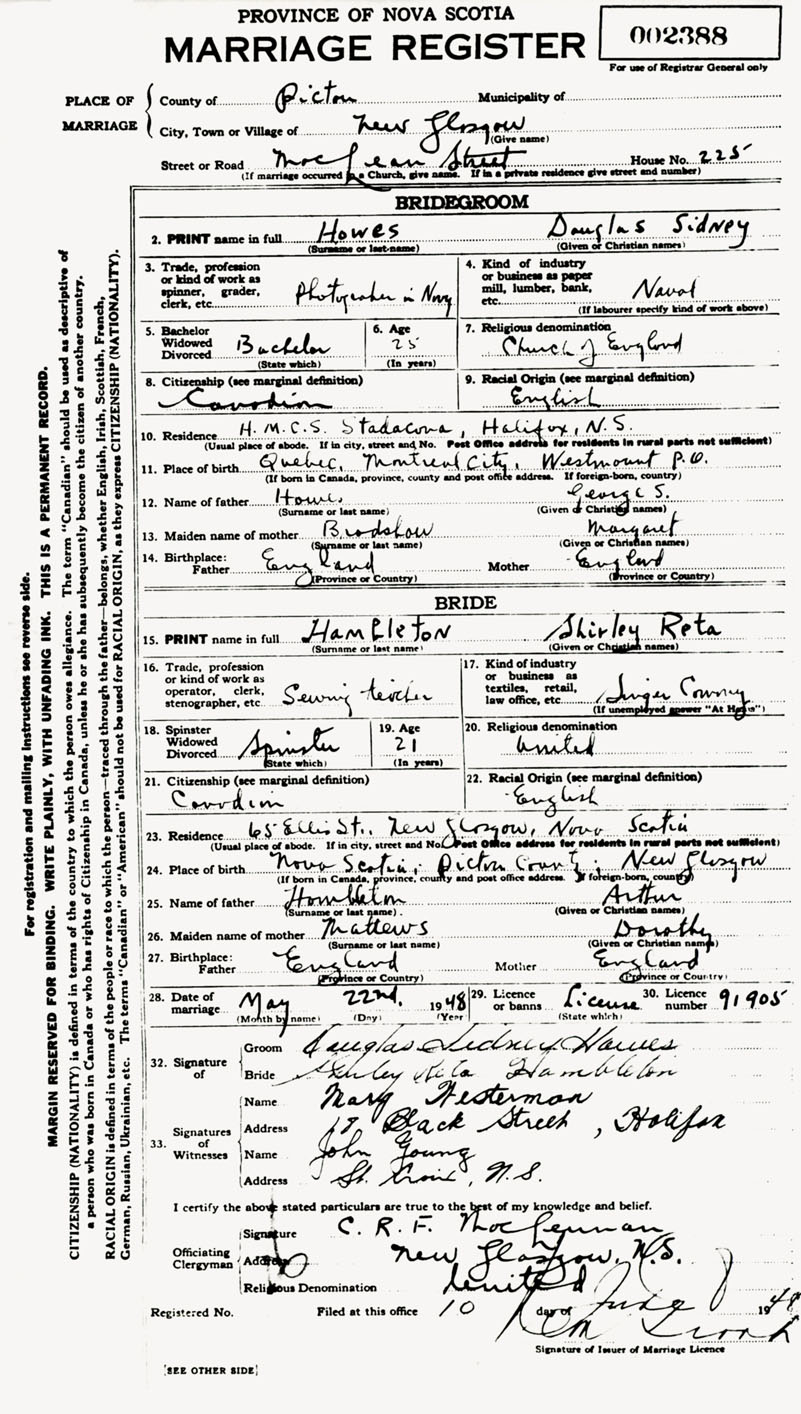 PROVINCE OF NOVA SCOTIA
MARRIAGE REGISTER
002388
For use of Registrar General only
PLACE OF MARRIAGE
County of Pictou Municipality of
City, Town or Village of New Glasgow
(Give name)
Street or Road MacLean Street House No. 225
(If marriage occurred in a Church, give name. If in a private residence give street and number)
BRIDEGROOM
2. PRINT name in full Howes Douglas Sidney
(Surname or last name) (Given or Christian names)
3. Trade, profession or kind of work as spinner, grader, clerk, etc. Photographer in Navy
4. Kind of industry or business as paper mill, lumber, bank, etc. Naval
(If labourer specify kind of work above)
5. Bachelor Widowed Divorced Bachelor
(State which)
6. Age 25
(In years)
7. Religious denomination Church of England
8. Citizenship (see marginal definition) Canadian
9. Racial Origin (see marginal definition) English
10. Residence H.M.C.S. Stadacona, Halifax, N.S.
(Usual place of abode. If in city, street and No. Post Office address for residents in rural parts not sufficient)
11. Place of birth Quebec, Montreal City, Westmount P.O.
(If born in Canada, province, county and post office address. If foreign-born, country)
12. Name of father Howes George S.
(Surname or last name) (Given or Christian names)
13. Maiden name of mother Bradshaw Margaret
(Surname or last name) (Given or Christian names)
14. Birthplace: Father England Mother England
(Province or Country) (Province or Country)
BRIDE
15. PRINT name in full Hambleton Shirley Reta
(Surname or last name) (Given or Christian names)
16. Trade, profession or kind of work as operator, clerk, stenographer, etc. Sewing teacher
17. Kind of industry or business as textiles, retail, law office, etc. Singer Company
(If unemployed answer "At Home")
18. Spinster Widowed Divorced Spinster
(State which)
19. Age 21
(In years)
20. Religious denomination United
21. Citizenship (see marginal definition) Canadian
22. Racial Origin (see marginal definition) English
23. Residence 65 Ellis St., New Glasgow, Nova Scotia
(Usual place of abode. If in city, street and No. Post Office address for residents in rural parts not sufficient)
24. Place of birth Nova Scotia; Pictou County; New Glasgow
(If born in Canada, province, county and post office address. If foreign-born, country)
25. Name of father Hambleton Arthur
(Surname or last name) (Given or Christian names)
26. Maiden name of mother Mathews Dorothy
(Surname or last name) (Given or Christian names)
27. Birthplace: Father England Mother England
(Province or Country) (Province or Country)
28. Date of marriage May 22nd. 1948 29. Licence or banns License 30. Licence number 91905
(Month by name) (Day) (Year) (State which)
32. Signature of
Groom Douglas Sidney Howes
Bride Shirley Reta Hambleton
33. Signatures of Witnesses
Name Mary Westerman
Address 18 Black Street, Halifax
Name John Young
Address St. Croix, N.S.
I certify the above stated particulars are true to the best of my knowledge and belief.
Officiating Clergyman
Signature C. R. F. MacLennan
Address New Glasgow, N.S.
Religious Denomination United
Registered No. Filed at this office 10 day of June 1948
Signature of Issuer of Marriage Licence
[SEE OTHER SIDE]
For registration and mailing instructions see reverse side.
MARGIN RESERVED FOR BINDING. WRITE PLAINLY, WITH UNFADING INK. THIS IS A PERMANENT RECORD.
CITIZENSHIP (NATIONALITY) is defined in terms of the country to which the person owes allegiance. The term "Canadian" should be used as descriptive of
a person who was born in Canada or who has rights of Citizenship in Canada, unless he or she has subsequently become the citizen of another country.
RACIAL ORIGIN is defined in terms of the people or race to which the person—traced through the father—belongs, whether English, Irish, Scottish, French,
German, Russian, Ukrainian, etc. The terms "Canadian" or "American" should not be used for RACIAL ORIGIN, as they express CITIZENSHIP (NATIONALITY).